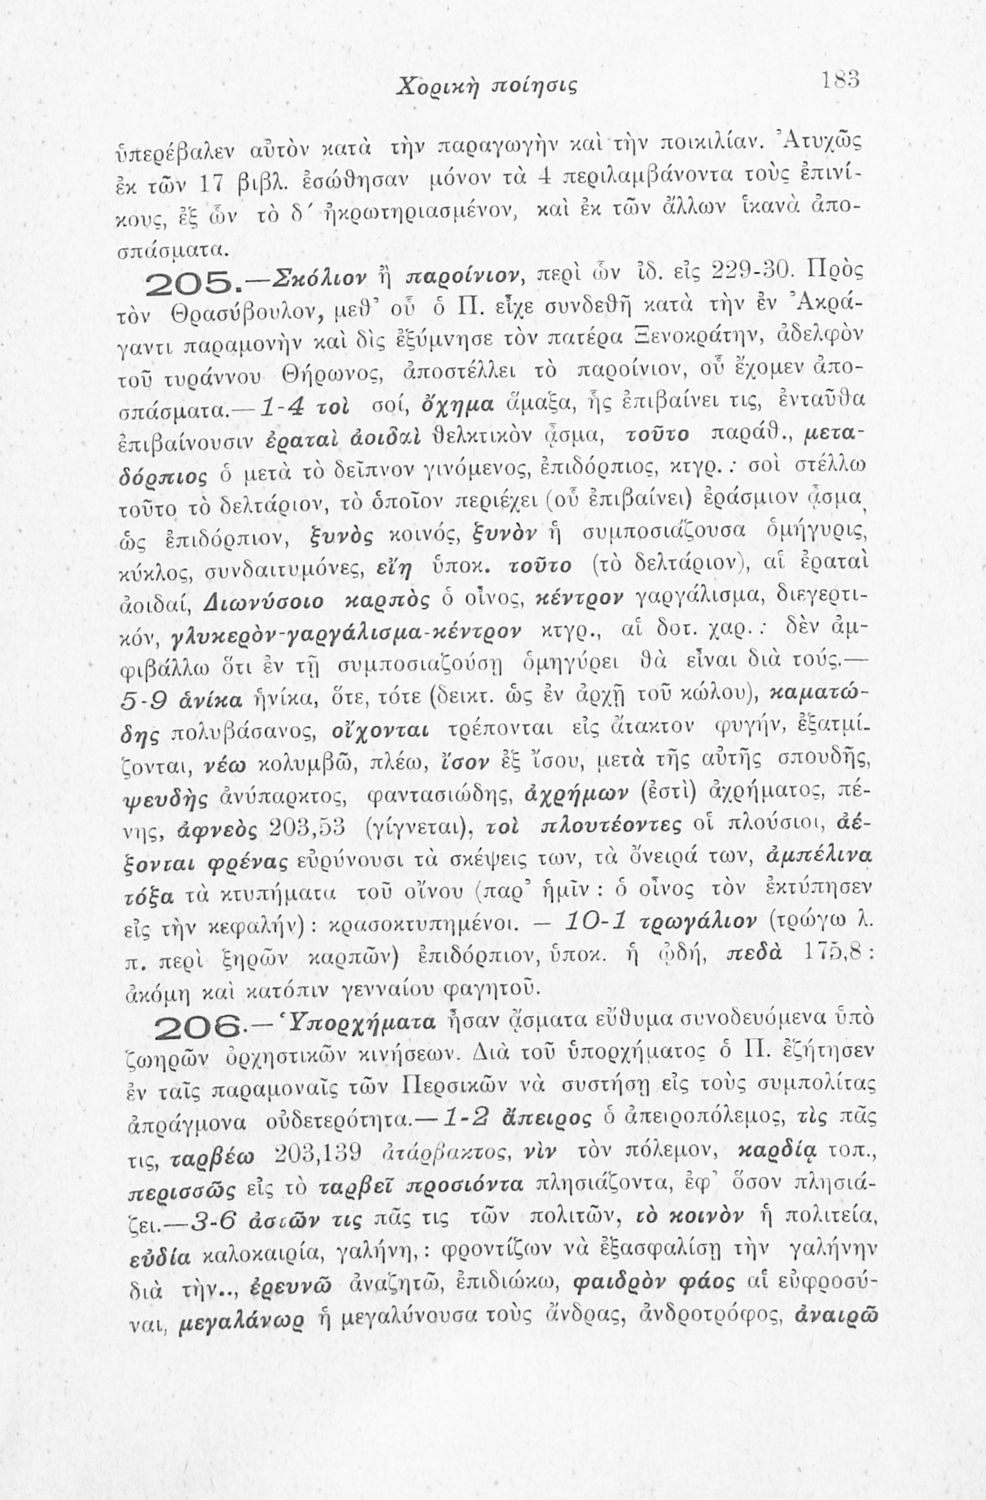 Χορικὴ ποίησις 183
ὑπερέβαλεν αὐτὸν κατὰ τὴν παραγωγὴν καὶ τὴν ποικιλίαν. Ἀτυχῶς
ἐκ τῶν 17 βιβλ. ἐσώθησαν μόνον τὰ 4 περιλαμβάνοντα τοὺς ἐπινί-
κους, ἐξ ὧν τὸ δ΄ ἠκρωτηριασμένον, καὶ ἐκ τῶν ἄλλων ἱκανὰ ἀπο-
σπάσματα.
205.—Σκόλιον ἢ παροίνιον, περὶ ὧν ἰδ. εἰς 229-30. Πρὸς
τὸν Θρασύβουλον, μεθ' οὗ ὁ Π. εἶχε συνδεθῆ κατὰ τὴν ἐν Ἀκρά-
γαντι παραμονὴν καὶ δὶς ἐξύμνησε τὸν πατέρα Ξενοκράτην, ἀδελφὸν
τοῦ τυράννου Θήρωνος, ἀποστέλλει τὸ παροίνιον, οὗ ἔχομεν ἀπο-
σπάσματα.—1-4 τοὶ σοί, ὄχημα ἅμαξα, ἧς ἐπιβαίνει τις, ἐνταῦθα
ἐπιβαίνουσιν ἐραταὶ ἀοιδαὶ θελκτικὸν ᾆσμα, τοῦτο παράθ., μετα-
δόρπιος ὁ μετὰ τὸ δεῖπνον γινόμενος, ἐπιδόρπιος, κτγρ. : σοὶ στέλλω
τοῦτο τὸ δελτάριον, τὸ ὁποῖον περιέχει (οὗ ἐπιβαίνει) ἐράσμιον ᾆσμα
ὡς ἐπιδόρπιον, ξυνὸς κοινός, ξυνὸν ἡ συμποσιάζουσα ὁμήγυρις,
κύκλος, συνδαιτυμόνες, εἴη ὑποκ. τοῦτο (τὸ δελτάριον), αἱ ἐραταὶ
ἀοιδαί, Διωνύσοιο καρπὸς ὁ οἶνος, κέντρον γαργάλισμα, διεγερτι-
κόν, γλυκερὸν-γαργάλισμα-κέντρον κτγρ., αἱ δοτ. χαρ. : δὲν ἀμ-
φιβάλλω ὅτι ἐν τῇ συμποσιαζούσῃ ὁμηγύρει θὰ εἶναι διὰ τούς.—
5-9 ἁνίκα ἡνίκα, ὅτε, τότε (δεικτ. ὡς ἐν ἀρχῇ τοῦ κώλου), καματώ-
δης πολυβάσανος, οἴχονται τρέπονται εἰς ἄτακτον φυγήν, ἐξατμί-
ζονται, νέω κολυμβῶ, πλέω, ἴσον ἐξ ἴσου, μετὰ τῆς αὐτῆς σπουδῆς,
ψευδὴς ἀνύπαρκτος, φαντασιώδης, ἀχρήμων (ἐστὶ) ἀχρήματος, πέ-
νης, ἀφνεὸς 203,53 (γίγνεται), τοὶ πλουτέοντες οἱ πλούσιοι, ἀέ-
ξονται φρένας εὐρύνουσι τὰ σκέψεις των, τὰ ὄνειρά των, ἀμπέλινα
τόξα τὰ κτυπήματα τοῦ οἴνου (παρ' ἡμῖν : ὁ οἶνος τὸν ἐκτύπησεν
εἰς τὴν κεφαλήν) : κρασοκτυπημένοι. — 10-1 τρωγάλιον (τρώγω λ.
π. περὶ ξηρῶν καρπῶν) ἐπιδόρπιον, ὑποκ. ἡ ᾠδή, πεδὰ 175,8 :
ἀκόμη καὶ κατόπιν γενναίου φαγητοῦ.
206.—Ὑπορχήματα ἦσαν ᾄσματα εὔθυμα συνοδευόμενα ὑπὸ
ζωηρῶν ὀρχηστικῶν κινήσεων. Διὰ τοῦ ὑπορχήματος ὁ Π. ἐζήτησεν
ἐν ταῖς παραμοναῖς τῶν Περσικῶν νὰ συστήσῃ εἰς τοὺς συμπολίτας
ἀπράγμονα οὐδετερότητα.—1-2 ἄπειρος ὁ ἀπειροπόλεμος, τὶς πᾶς
τις, ταρβέω 203,139 ἀτάρβακτος, νὶν τὸν πόλεμον, καρδίᾳ τοπ.,
περισσῶς εἰς τὸ ταρβεῖ προσιόντα πλησιάζοντα, ἐφ' ὅσον πλησιά-
ζει.—3-6 ἀστῶν τις πᾶς τις τῶν πολιτῶν, τὸ κοινὸν ἡ πολιτεία,
εὐδία καλοκαιρία, γαλήνη, : φροντίζων νὰ ἐξασφαλίσῃ τὴν γαλήνην
διὰ τὴν.., ἐρευνῶ ἀναζητῶ, ἐπιδιώκω, φαιδρὸν φάος αἱ εὐφροσύ-
ναι, μεγαλάνωρ ἡ μεγαλύνουσα τοὺς ἄνδρας, ἀνδροτρόφος, ἀναιρῶ